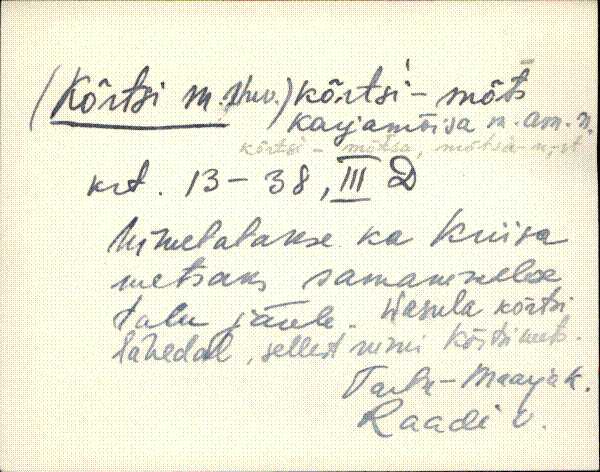 (Kõrtsi m. Vv.) kõrtsi - mõts
karjamõisa m. am. n.
kõrtsi - mõtsa, mõtsa-
krt. 13-38, III D
Nimetatakse ka Kriisa
metsaks samanimelise
talu järele. Wasula kõrtsi
lähedal, sellest nimi Kõrtsimets.
Tartu-Maarja k.
Raadi v.